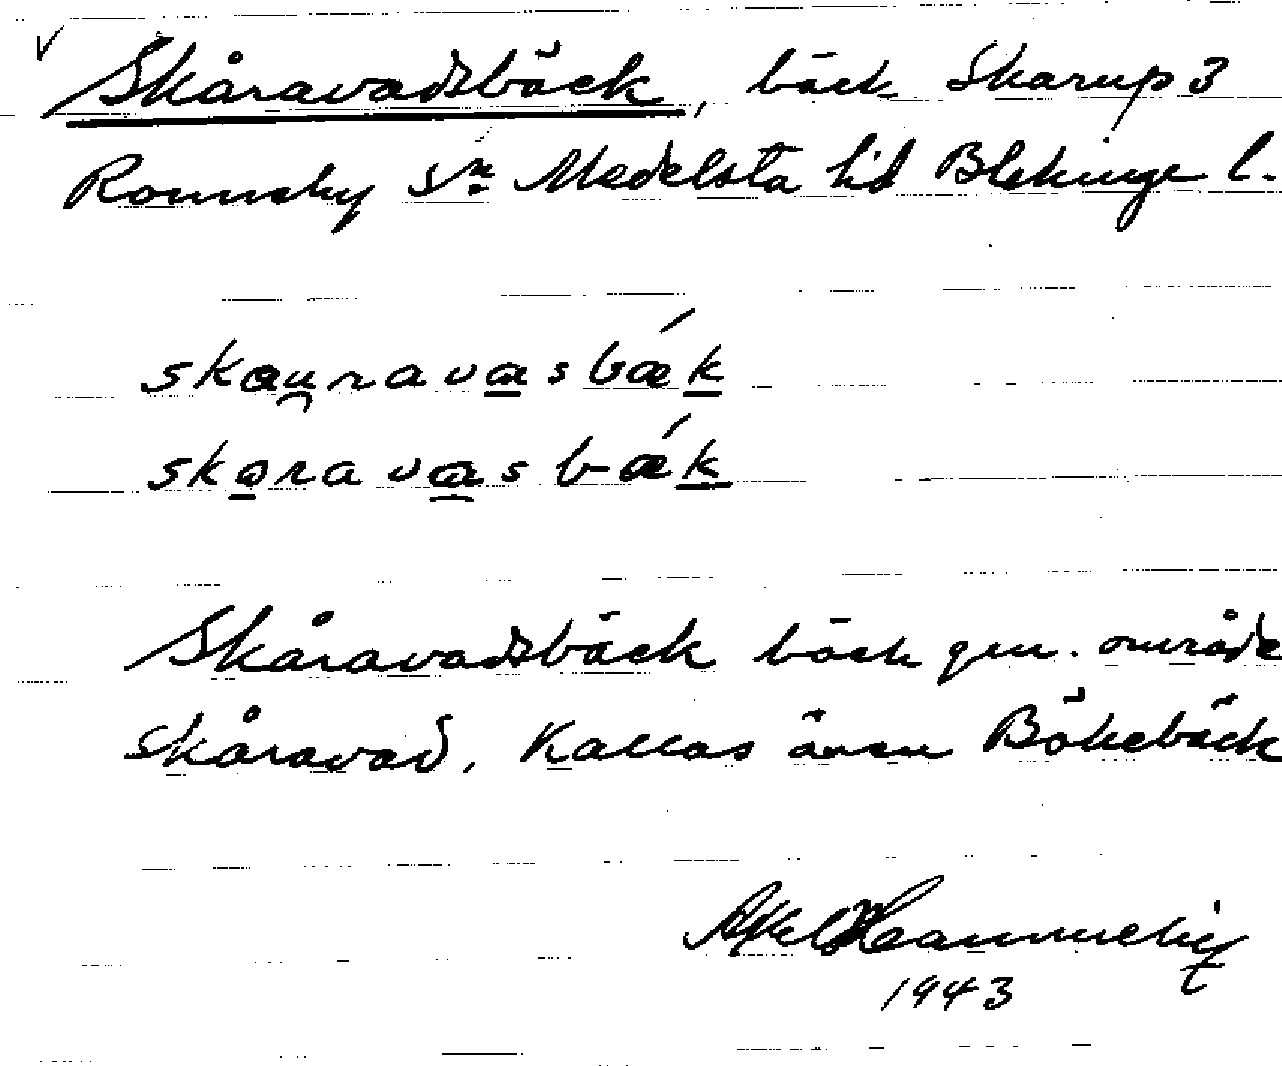 Skåravadsbäck, bäck Skarup 3
Ronneby sn Medelsta hd Blekinge l.
skau̯ravɑsbǽk
skåravɑsbǽk
Skåravadsbäck bäck gm. område
skåravad. Kallas även Bökebäck
Axel
1943